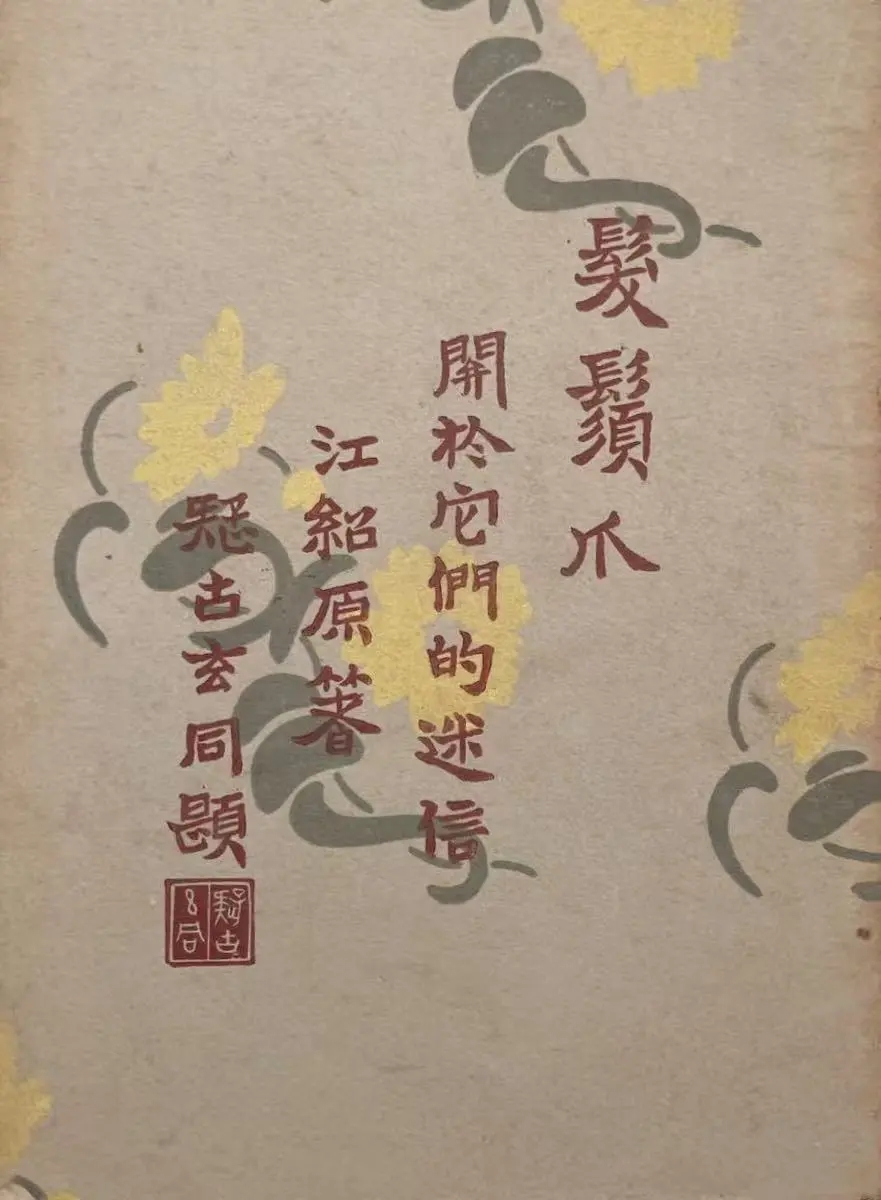 髮鬚爪
開於它們的迷信
江紹原著
疑古玄同題
疑古玄同